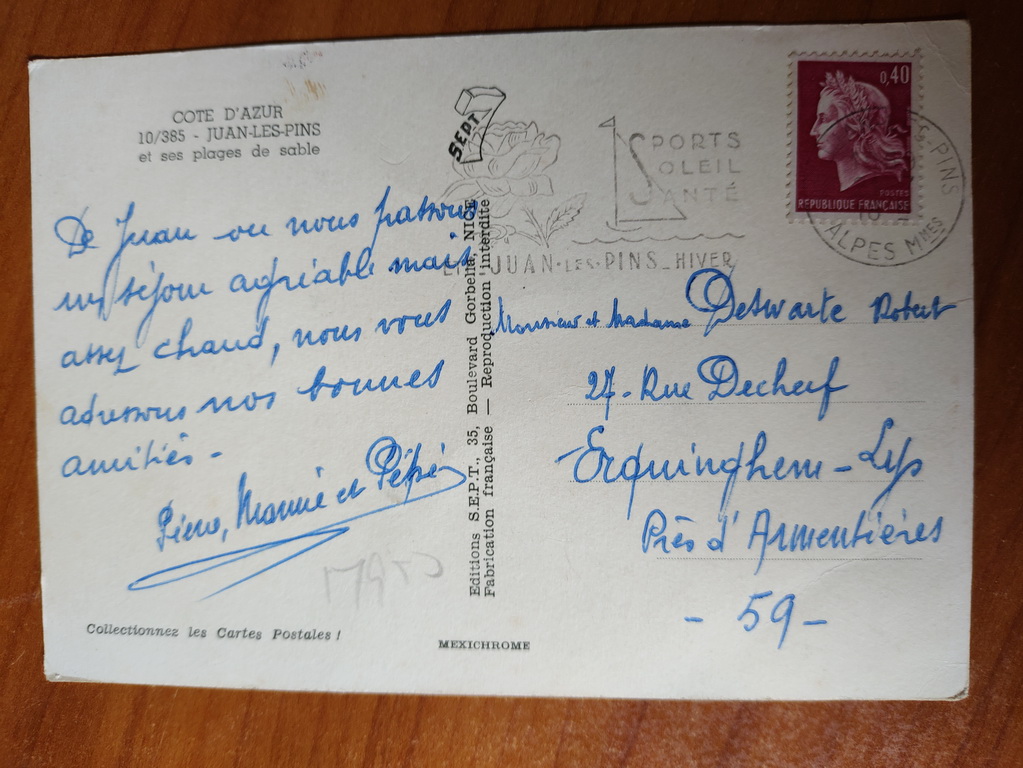 COTE D'AZUR
10/385 - JUAN-LES-PINS
et ses plages de sable
De Juan ou nous passons
un séjour agréable mais
assez chaud, nous vous
adressons nos bonnes
amitiés -
Pierre, Mamie et Pépé
Collectionnez les Cartes Postales !
SEPT
Editions S.E.P.T., 35, Boulevard Gorbella, NICE
Fabrication française — Reproduction interdite
MEXICHROME
SPORTS
SOLEIL
SANTÉ
JUAN-LES-PINS_HIVER
0,40
POSTES
REPUBLIQUE FRANÇAISE
S-PINS
ALPES MMES
Monsieur et Madame Deswarte Robert
27 - Rue Decherf
Erquinghem - Lys
Près d'Armentières
- 59 -